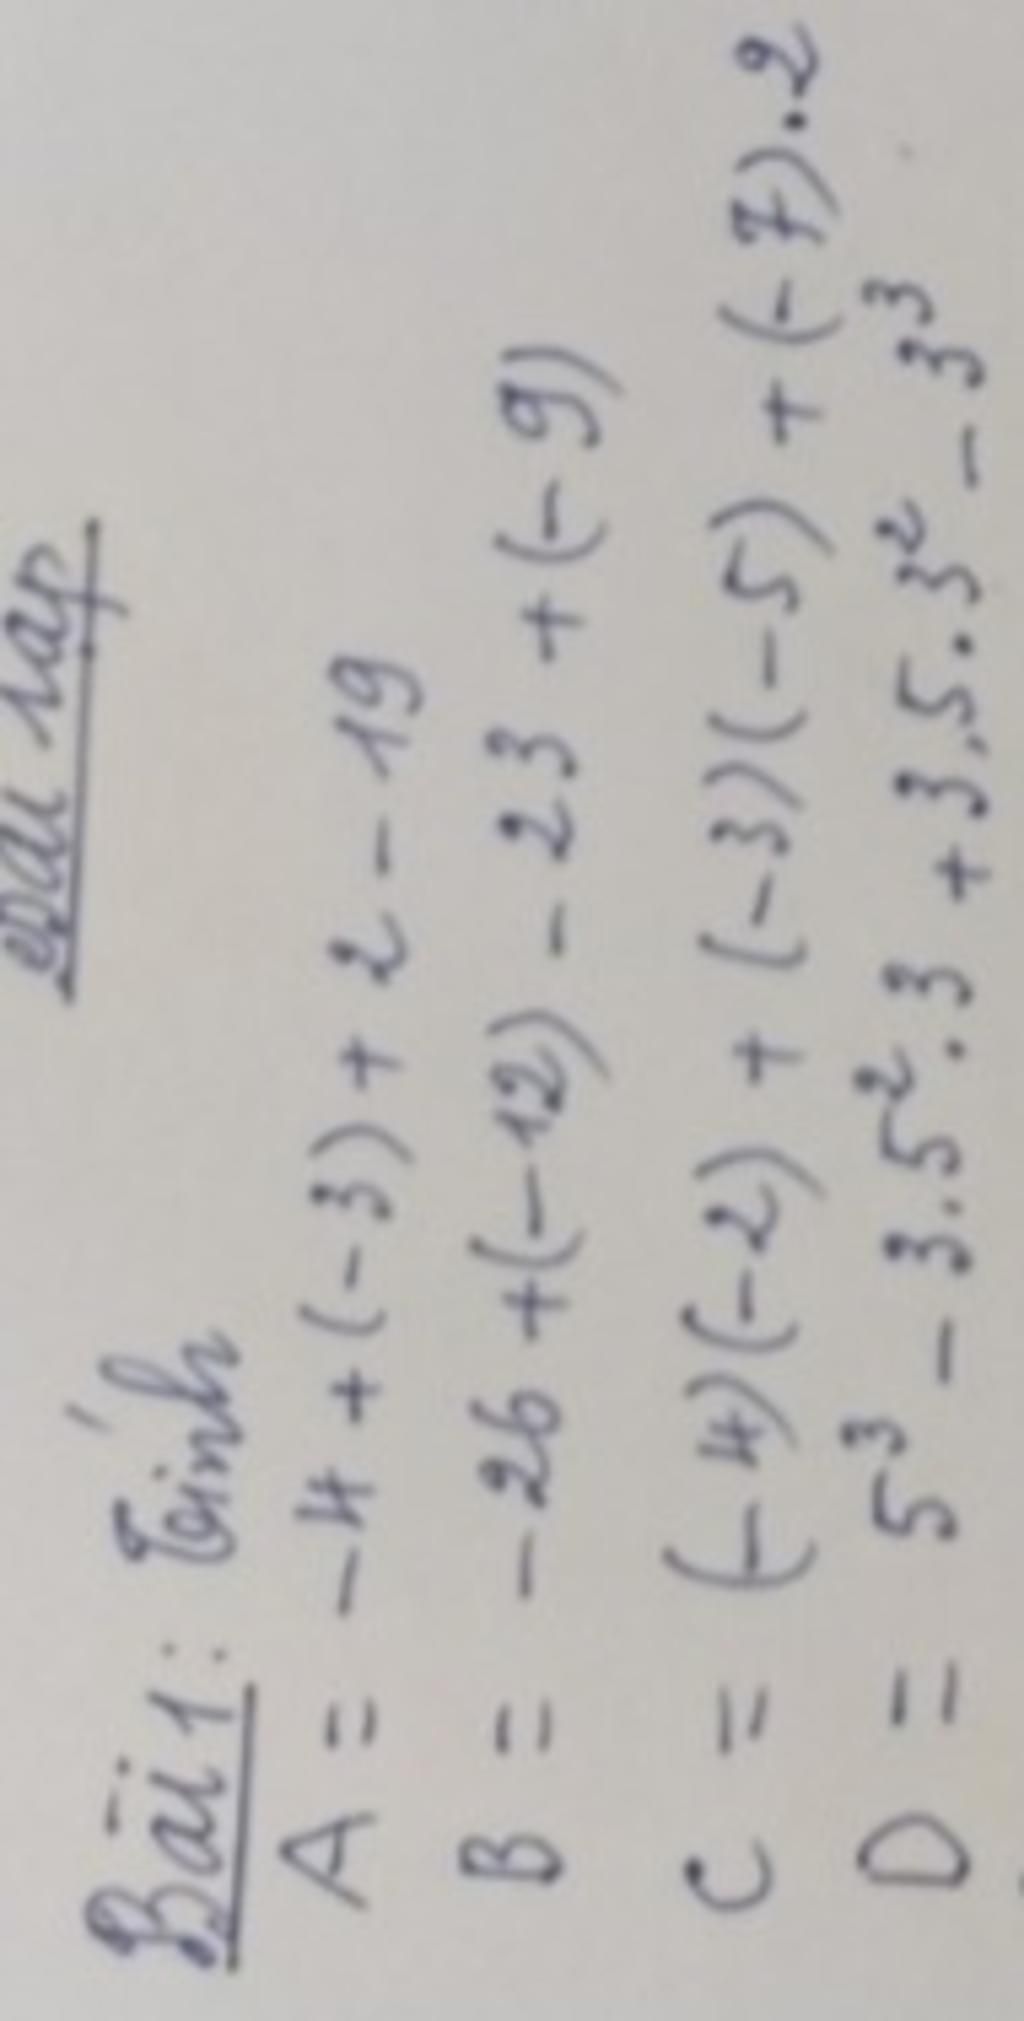 Bài tập
Bài 1: Tính
A = -4 + (-3) + 2 - 19
B = -26 + (-12) - 23 + (-9)
C = (-4)(-2) + (-3)(-5) + (-7).2
D = 5³ - 3.5².3 + 3.5.3² - 3³